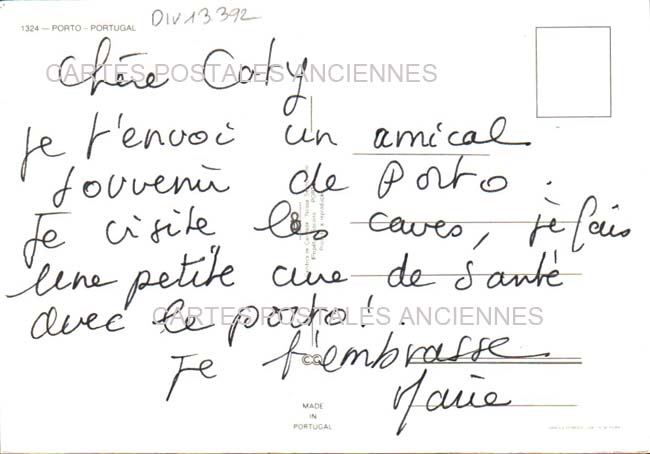 DIV13392
1324 — PORTO – PORTUGAL
CARTES POSTALES ANCIENNES
Chère Caty
je t'envoi un amical
souvenir de Porto.
Je visite les caves, je fais
une petite cure de santé
avec le porto!.
CARTES POSTALES ANCIENNES
Je t'embrasse
Marie
MADE
IN
PORTUGAL